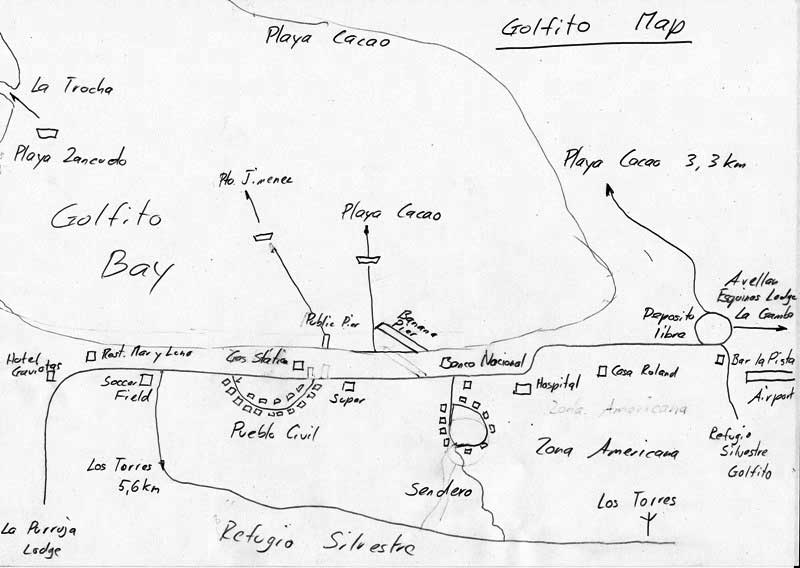 Golfito Map
Playa Cacao
La Trocha
Playa Zancudo
Golfito
Bay
Pto. Jimenez
Playa Cacao
Playa Cacao 3,3 km
Avellan
Esquinas Lodge
La Gamba
Deposito
libre
Public Pier
Banana
Pier
Hotel
Gaviotas
Rest. Mar y Luna
Gas Station
Banco Nacional
Bar la Pista
Airport
Soccer
Field
Super
Hospital
Casa Roland
Zona Americana
Pueblo Civil
Zona Americana
Refugio
Silvestre
Golfito
Los Torres
5,6 km
Sendero
Los Torres
La Purruja
Lodge
Refugio Silvestre